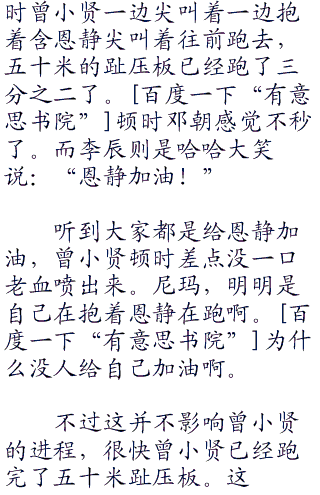 时曾小贤一边尖叫着一边抱
着含恩静尖叫着往前跑去，
五十米的趾压板已经跑了三
分之二了。[百度一下“有意
思书院”]顿时邓朝感觉不秒
了。而李辰则是哈哈大笑
说：“恩静加油！”
听到大家都是给恩静加
油，曾小贤顿时差点没一口
老血喷出来。尼玛，明明是
自己在抱着恩静在跑啊。[百
度一下“有意思书院”]为什
么没人给自己加油啊。
不过这并不影响曾小贤
的进程，很快曾小贤已经跑
完了五十米趾压板。这